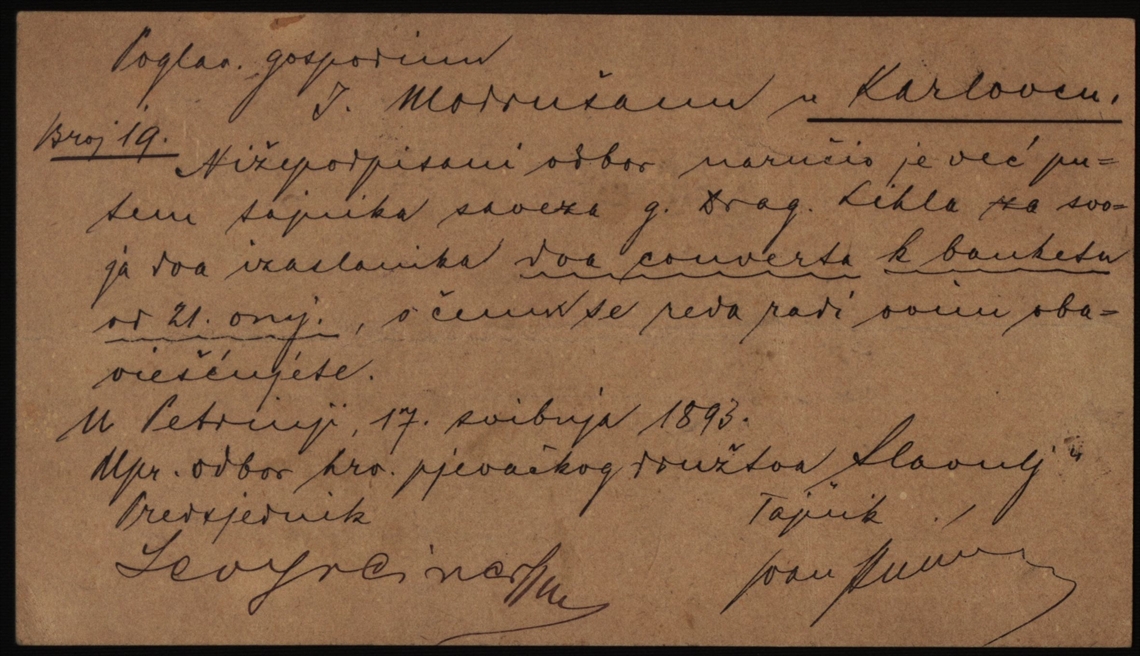 Poglav. gospodinu
J. Modrušanu u Karlovcu.
Broj 19.
Nižepodpisani odbor naručio je već pu=
tem tajnika saveza g. Drag. Lihla za svo=
ja dva izaslanika dva couverta k banketu
od 21. ov. mj., o čemu se reda radi ovim oba=
viešćujete.
U Petrinji, 17. svibnja 1893.
Upr. odbor hrv. pjevačkog družtva Slavulj"
Predsjednik Tajnik
Ivan